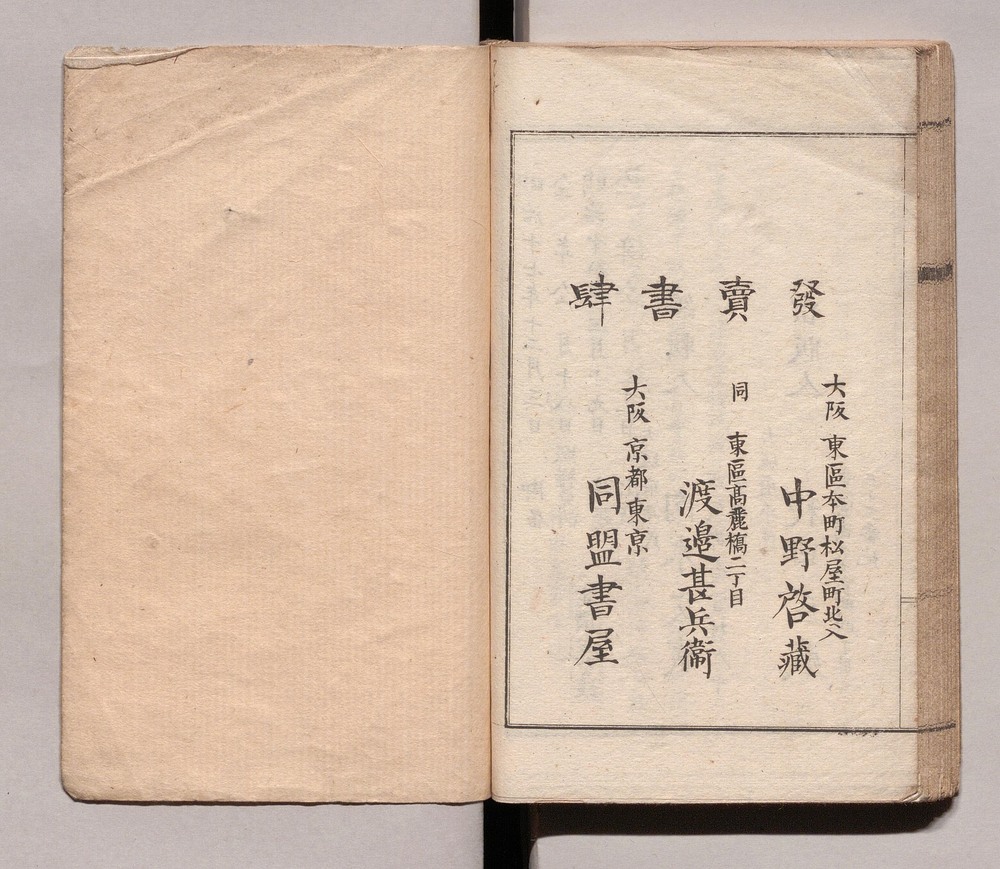 發賣書肆
大阪 東區本町松屋町北入
中野啓藏
同 東區高麗橋二丁目
渡邉甚兵衞
大阪 京都東京
同盟書屋